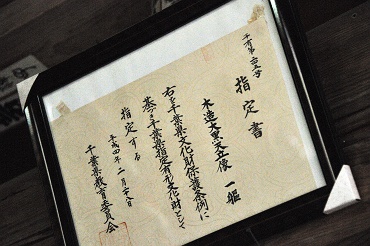 指定書
木造大黒天立像 一軀
右を千葉県文化財保護条例に
基づき千葉県指定有形文化財として
指定する
平成四年二月二十八日
千葉県教育委員会